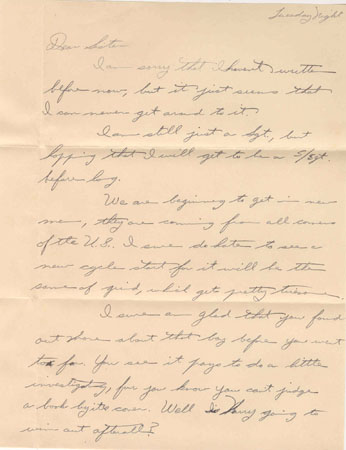 Tuesday Night
Dear Sister
I am sorry that I havent written
before now, but it just seems that
I can never get around to it.
I am still just a Sgt, but
hopping that I will get to be a S/Sgt.
before long.
We are beginning to get in new
men, they are coming from all corners
of the U.S. I sure do hate to see a
new cycle start for it will be the
same old grind, which gets pretty
I sure am glad that you found
out more about that boy before you went
to far. You see it pays to do a little
investigating, for you know you cant judge
a book by its cover. Well Is Harry going to
win out afterall?